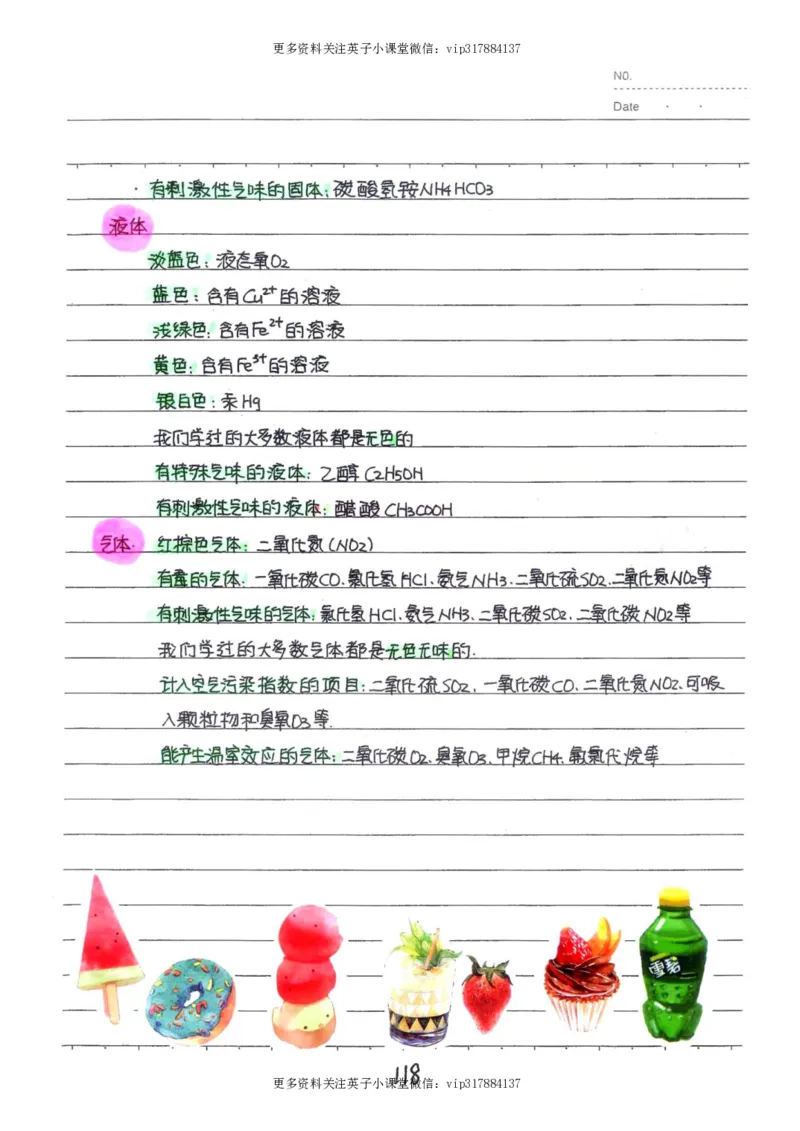 更多资料关注英子小课堂微信：vip317884137
NO.
Date · ·
·有刺激性气味的固体：碳酸氢铵NH4HCO3
液体
淡蓝色：液态氧O2
蓝色：含有Cu²⁺的溶液
浅绿色：含有Fe²⁺的溶液
黄色：含有Fe³⁺的溶液
银白色：汞Hg
我们学过的大多数液体都是无色的
有特殊气味的液体：乙醇C2H5OH
有刺激性气味的液体：醋酸CH3COOH
气体· 红棕色气体：二氧化氮(NO2)
有毒的气体：一氧化碳CO、氯化氢HCl、氨气NH3、二氧化硫SO2、二氧化氮NO2等
有刺激性气味的气体：氯化氢HCl、氨气NH3、二氧化碳SO2、二氧化碳NO2等
我们学过的大多数气体都是无色无味的.
计入空气污染指数的项目：二氧化硫SO2、一氧化碳CO、二氧化氮NO2、可吸
入颗粒物和臭氧O3等.
能产生温室效应的气体：二氧化碳O2、臭氧O3、甲烷CH4、氟氯代烷等
雪碧
118
更多资料关注英子小课堂微信：vip317884137